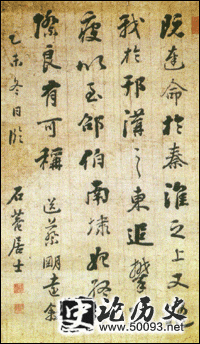 既達命於秦淮之上又随
我於邗溝之東追攀
疲以至邵伯南埭始終
際良有可稱 送蔡明遠叙
乙未冬日臨
石菴居士
论历史
www.50093.net